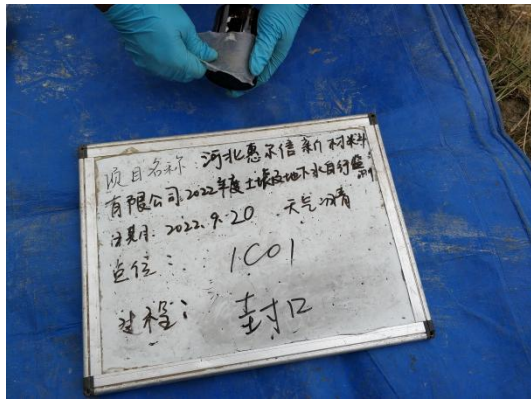 项目名称 河北惠尔信新材料
有限公司2022年度土壤及地下水自行监测
日期: 2022.9.20 天气:晴
点位: 1C01
过程: 封口